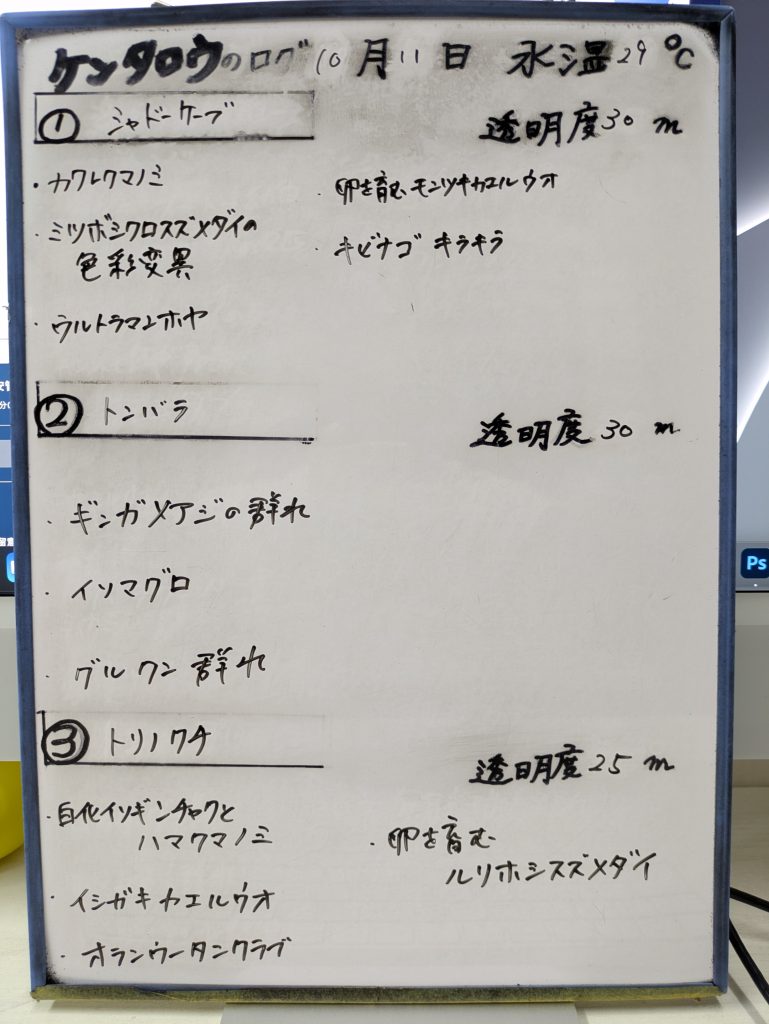 ケンタロウのログ 10月11日 水温29℃
① シャドーケーブ 透明度30m
・カクレクマノミ
・ミツボシクロスズメダイの
色彩変異
・ウルトラマンホヤ
・卵を育むモンツキカエルウオ
・キビナゴ キラキラ
② トンバラ 透明度30m
・ギンガメアジの群れ
・イソマグロ
・グルクン群れ
③ トリノクチ 透明度25m
・白化イソギンチャクと
ハマクマノミ
・イシガキカエルウオ
・オランウータンクラブ
・卵を育む
ルリホシスズメダイ
Ps